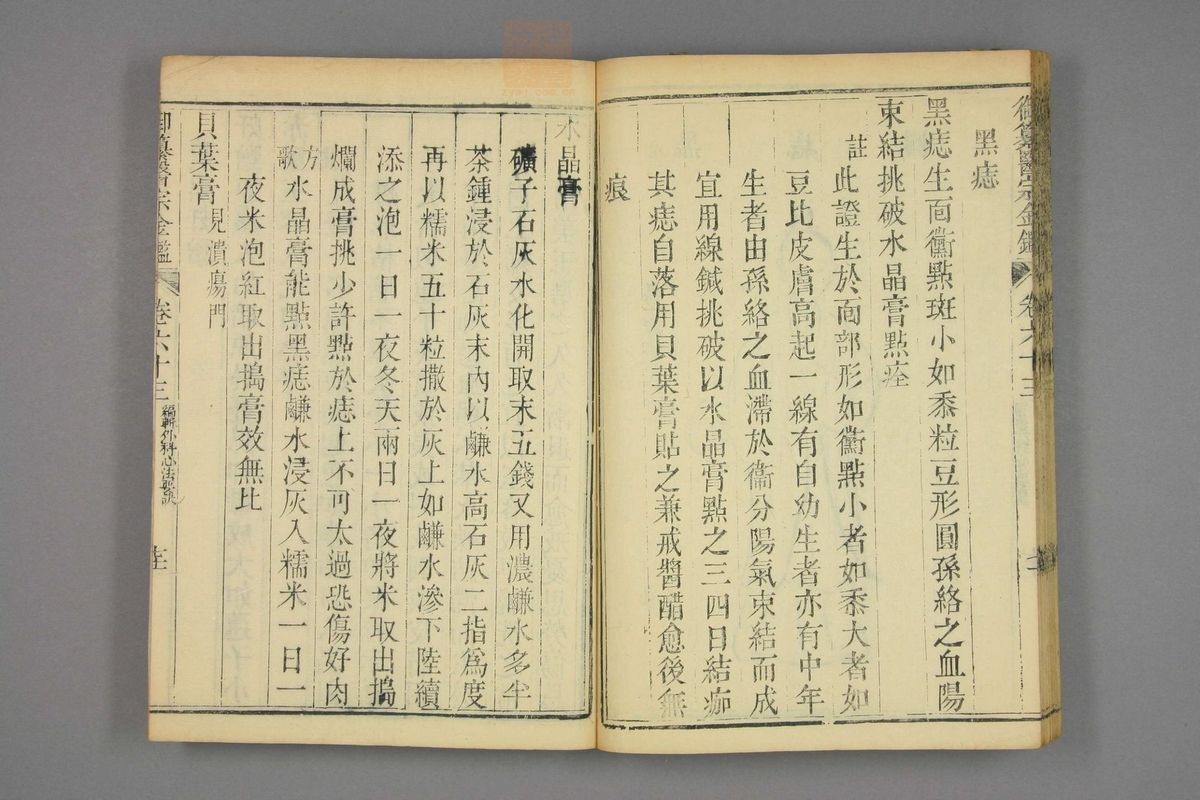 御纂醫宗金鑑 卷六十三
黑痣
黑痣生面黴點斑小如黍粒豆形圓孫絡之血陽
束結挑破水晶膏點痊
註此證生於面部形如黴點小者如黍大者如
豆比皮膚高起一線有自幼生者亦有中年
生者由孫絡之血滯於衞分陽氣束結而成
宜用線鍼挑破以水晶膏點之三四日結痂
其痣自落用貝葉膏貼之兼戒醬醋愈後無
痕
水晶膏
礦子石灰水化開取末五錢又用濃鹻水多半
茶鍾浸於石灰末內以鹻水高石灰二指爲度
再以糯米五十粒撒於灰上如鹻水滲下陸續
添之泡一日一夜冬天兩日一夜將米取出搗
爛成膏挑少許點於痣上不可太過恐傷好肉
方歌水晶膏能點黑痣鹻水浸灰入糯米一日一
夜米泡紅取出搗膏效無比
貝葉膏見潰瘍門
御纂醫宗金鑑 卷六十三 編輯外科心法要訣